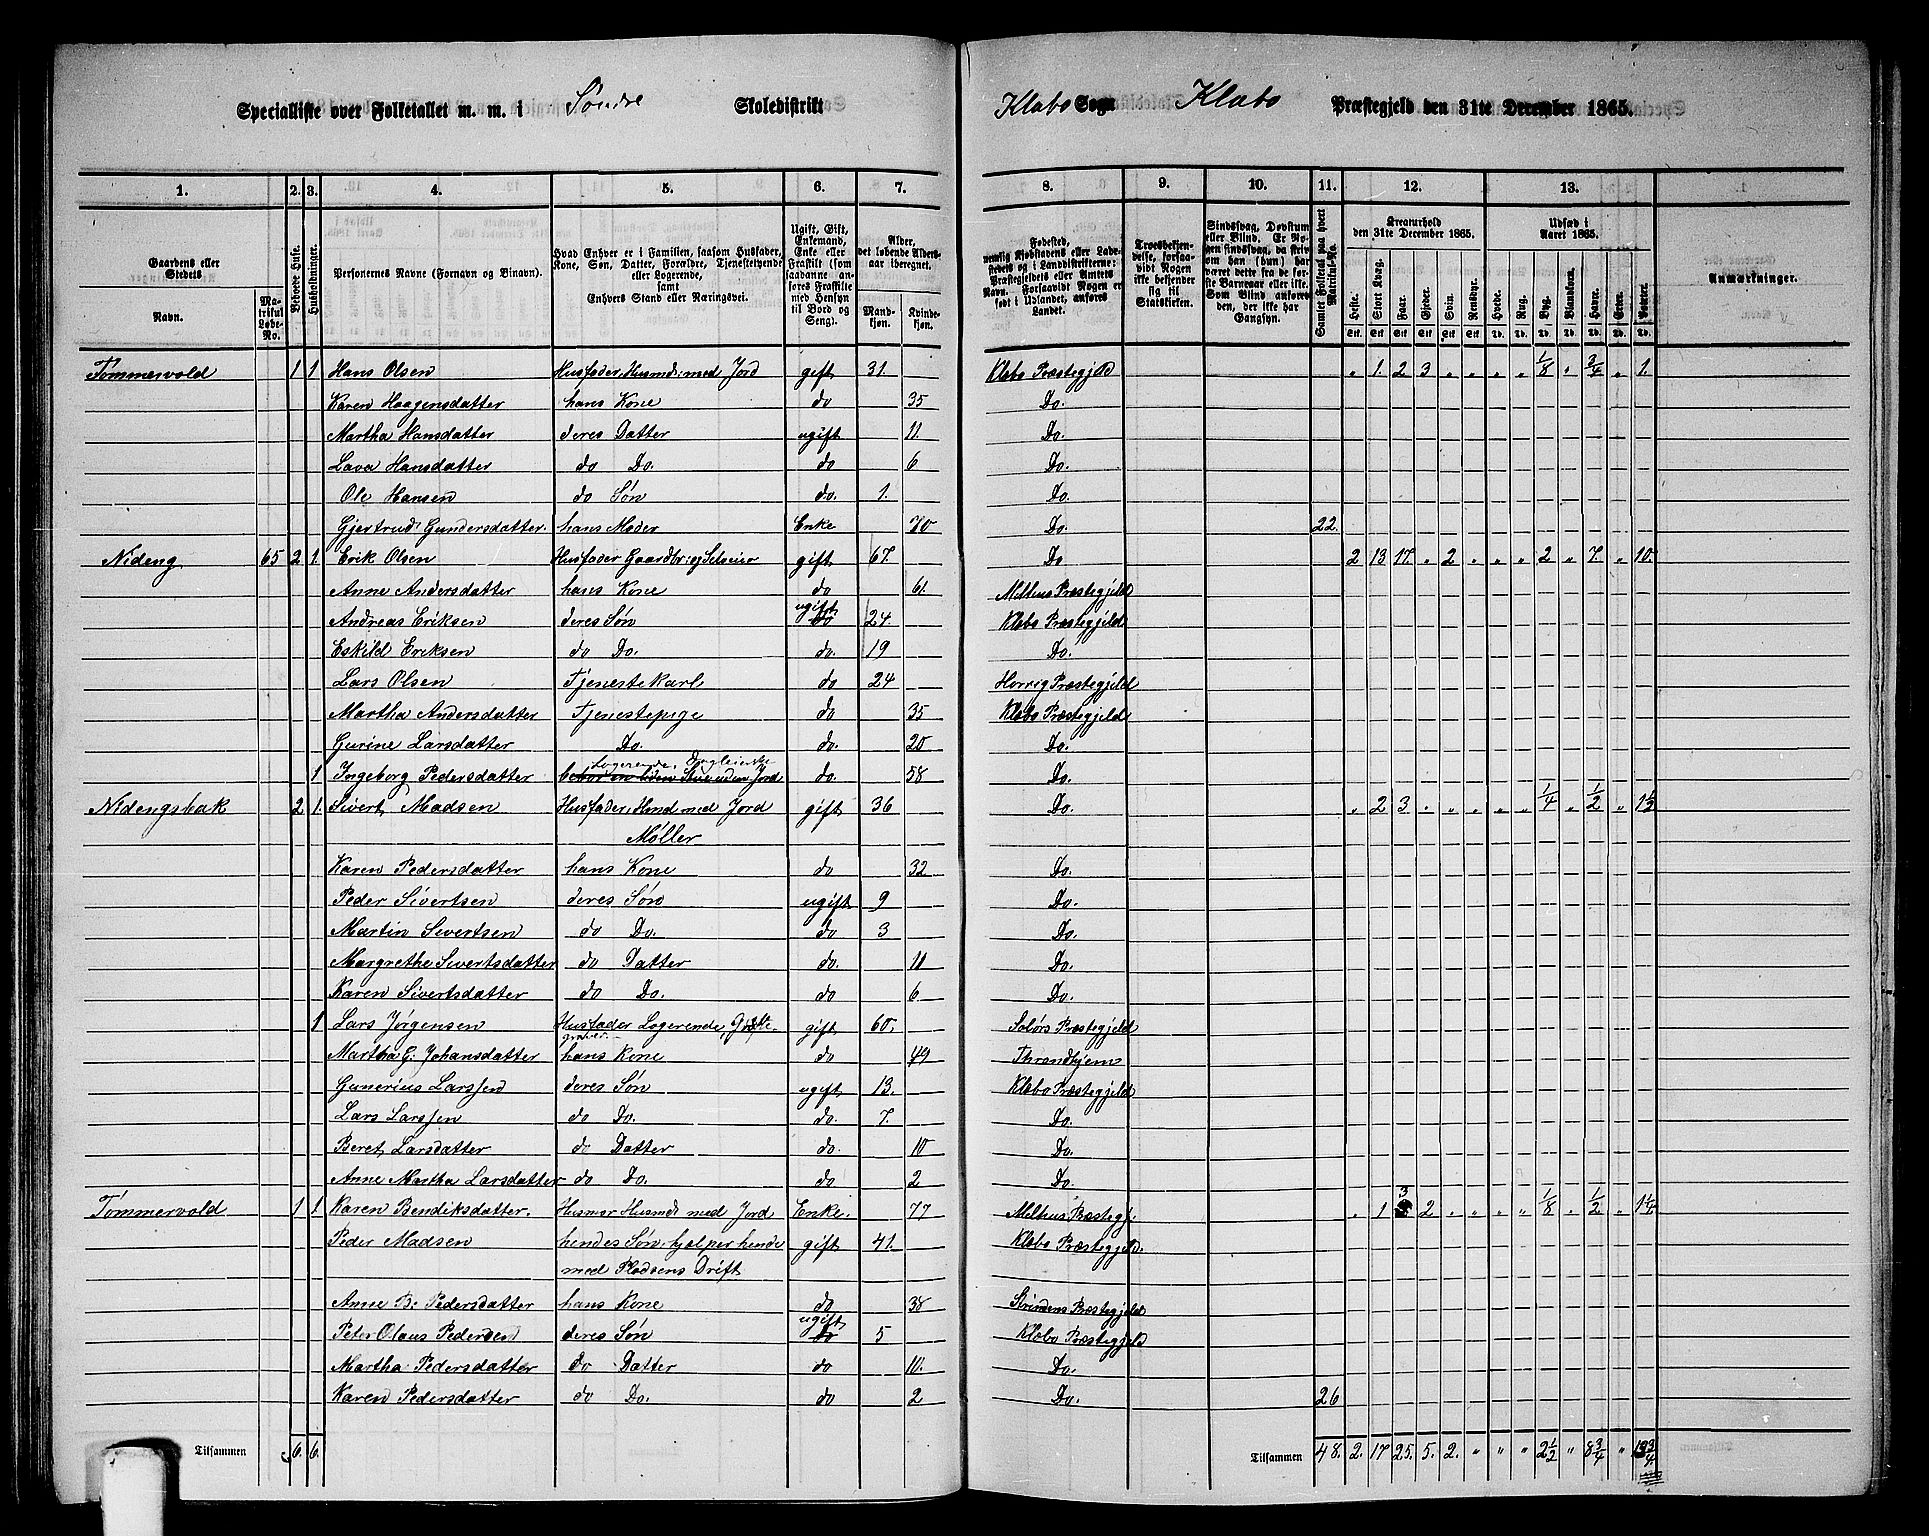 Specialliste over Folketallet m. m. i Søndre Skoledistrikt Klæbo Sogn Klæbo Præstegjeld den 31te December 1865.
1. 2. 3. 4. 5. 6. 7. 8. 9. 10. 11. 12. 13.
Gaardens eller Stedets Navn. Matrikul Løbe-No. Beboede Huse. Husholdninger. Personernes Navne (Fornavn og Binavn). Hvad Enhver er i Familien, saasom Husfader, Kone, Søn, Datter, Forældre, Tjenestetyende eller Logerende, samt Enhvers Stand eller Næringsvei. Ugift, Gift, Enkemand, Enke eller Fraskilt (som saadanne anføres Fraskilte med Hensyn til Bord og Seng). Alder, det løbende Aldersaar iberegnet. Mandkjøn. Kvindekjøn. Fødested, nemlig Kjøbstadens eller Ladestedets og i Landdistrikterne: Præstegjeldets eller Amtets Navn. Forsaavidt Nogen er født i Udlandet, anføres Landet. Troesbekjendelse, forsaavidt Nogen ikke bekjender sig til Statskirken. Sindssvag, Døvstum eller Blind. Samlet Folketal paa hvert Matrikul-No. Kreaturhold den 31te December 1865. Heste. Stort Kvæg. Faar. Gjeder. Svin. Rensdyr. Udsæd i Aaret 1865. Hvede. Rug. Byg. Blandkorn. Havre. Erter. Poteter. Anmærkninger.
Tømmervold 1 1 Hans Olsen Husfader, Husmd: med Jord gift 31. Klæbo Præstegjeld " 1. 2 3 " " " " 1/8 " 3/4 " 1.
Karen Haagensdatter hans Kone do 35 Do.
Martha Hansdatter deres Datter ugift 11. Do.
Lava Hansdatter do Do. do 6 Do.
Ole Hansen do Søn do. 1. Do.
Gjertrud Gundersdatter. hans Moder Enke 70 Do. 22.
Nideng 65 2 1. Erik Olsen Husfader Gaardbr: og Selveier gift 67. Do 2 13 17. " 2 " " " 2 " 7. " 10.
Anne Andersdatter hans Kone do 61. Melhus Præstegjeld
Andreas Eriksen deres Søn ugift 24. Klæbo Præstegjeld
Eskild Eriksen do Do. do. 19 Do.
Lars Olsen Tjenestekarl do 24 Horrig Præstegjeld
Martha Andersdatter Tjenestepige do 35 Klæbo Præstegjeld
Gurine Larsdatter Do. do. 20 Do.
1 Ingeborg Pedersdatter Logerende, do. 58 Do.
Nidengsbak 2 1. Sivert Madsen Husfader, Husmd med Jord gift 36 Do. " 2 3 " " " " " 1/4 " 1/2 " 1 1/2
Møller
Karen Pedersdatter hans Kone do 32 Do.
Peder Sivertsen deres Søn ugift 9 Do.
Martin Sivertsen do Do. do 3 Do.
Margrethe Sivertsdatter do Datter do. 11 Do.
Karen Sivertsdatter do Do. do 6 Do.
1 Lars Jørgensen Husfader Logerende, gift 60. Solørs Præstegjeld
Martha G: Johansdatter hans Kone do 49 Throndhjem
Gunerius Larssen deres Søn ugift 13. Klæbo Præstegjeld
Lars Larssen do Do. do. 7. Do.
Beret Larsdatter do Datter do. 10 Do.
Anne Martha Larsdatter do Do. do 2 Do.
Tømmervold 1 1. Karen Bendiksdatter. Husmor Husmds med Jord Enke. 77 Melhus Præstegj. " 1 3 2 " " " " 1/8 " 1/2 " 1 1/4
Peder Madsen hendes Søn, hjælper hende gift 41. Klæbo Præstegjeld.
med Pladsens Drift
Anne B: Pedersdatter hans Kone do 38 Strindens Præstegjeld
Peter Olaus Pedersen deres Søn ugift 5 Klæbo Præstegjeld
Martha Pedersdatter do Datter do 10. Do.
Karen Pedersdatter do Do. do 2 Do. 26
Tilsammen 6. 6. Tilsammen 48. 2. 17 25. 5. 2. " " " 2 1/2 " 8 3/4 " 13 3/4